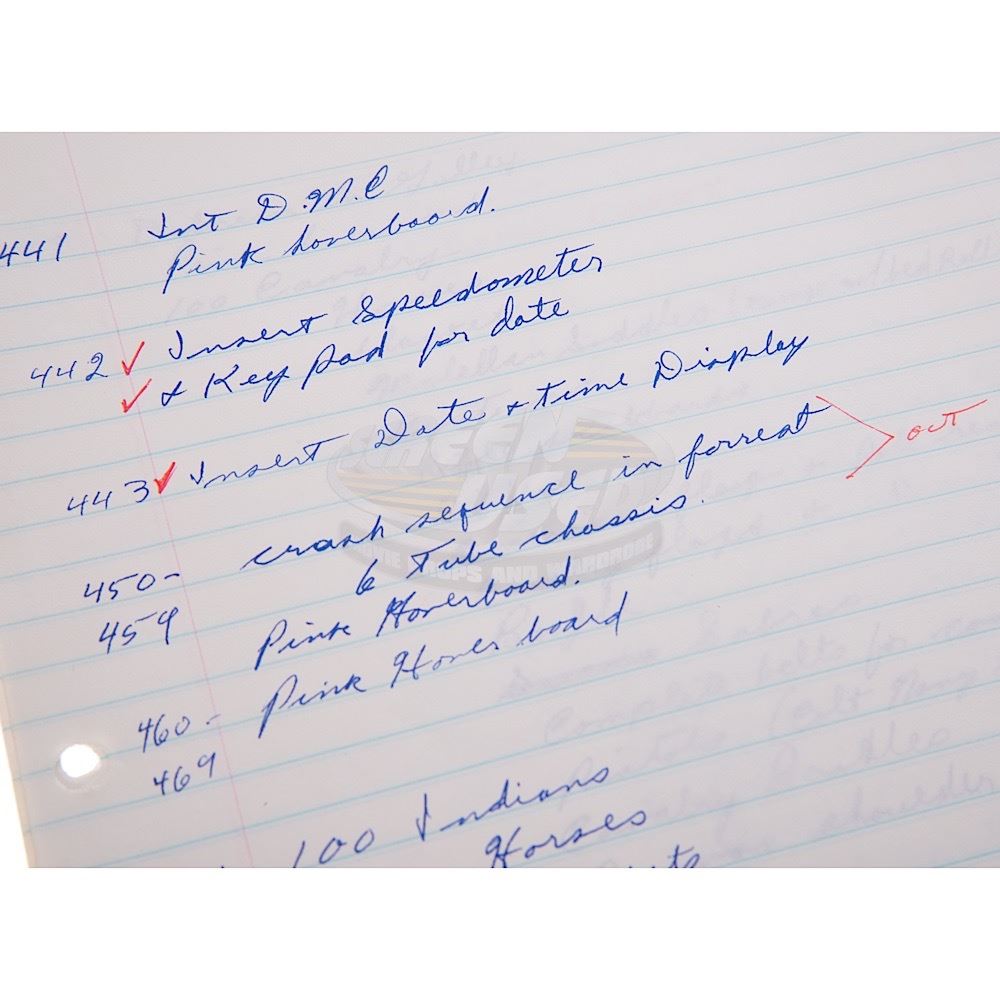 441 Int D.M.C
Pink hoverboard.
442 ✓ Insert Speedometer
✓ & Key pad for date
443 ✓ Insert Date & time Display
450- crash sequence in forreat > out
459 6 Tube chassis.
Pink Hoverboard.
460- Pink Hover board
469
100 Indians
Horses
SCREEN
USED
PROPS AND WARDROBE